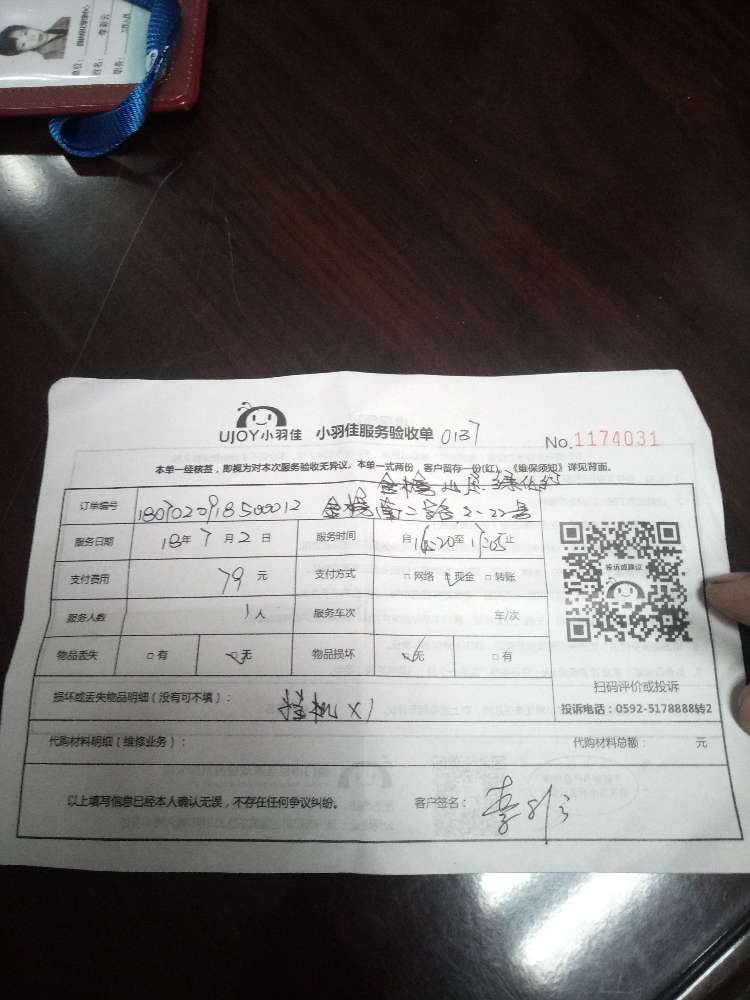 单位：
姓名：李彩云
职务：工作人员
UJOY小羽佳 小羽佳服务验收单 0137
No.1174031
本单一经核签，即视为对本次服务验收无异议。本单一式两份，客户留存一份(红)，《维保须知》详见背面。
订单编号 180702091850012 金榜
服务日期 18年7月2日 服务时间 月 至 止
支付费用 79元 支付方式 □网络 现金 □转账
服务人数 1人 服务车次 车/次
物品丢失 □有 无 物品损坏 无 □有
投诉或建议
扫码评价或投诉
投诉电话：0592-5178888转2
损坏或丢失物品明细（没有可不填）： 挂机X1
代购材料明细（维修业务）： 代购材料总额： 元
以上填写信息已经本人确认无误，不存在任何争议纠纷。 客户签名：